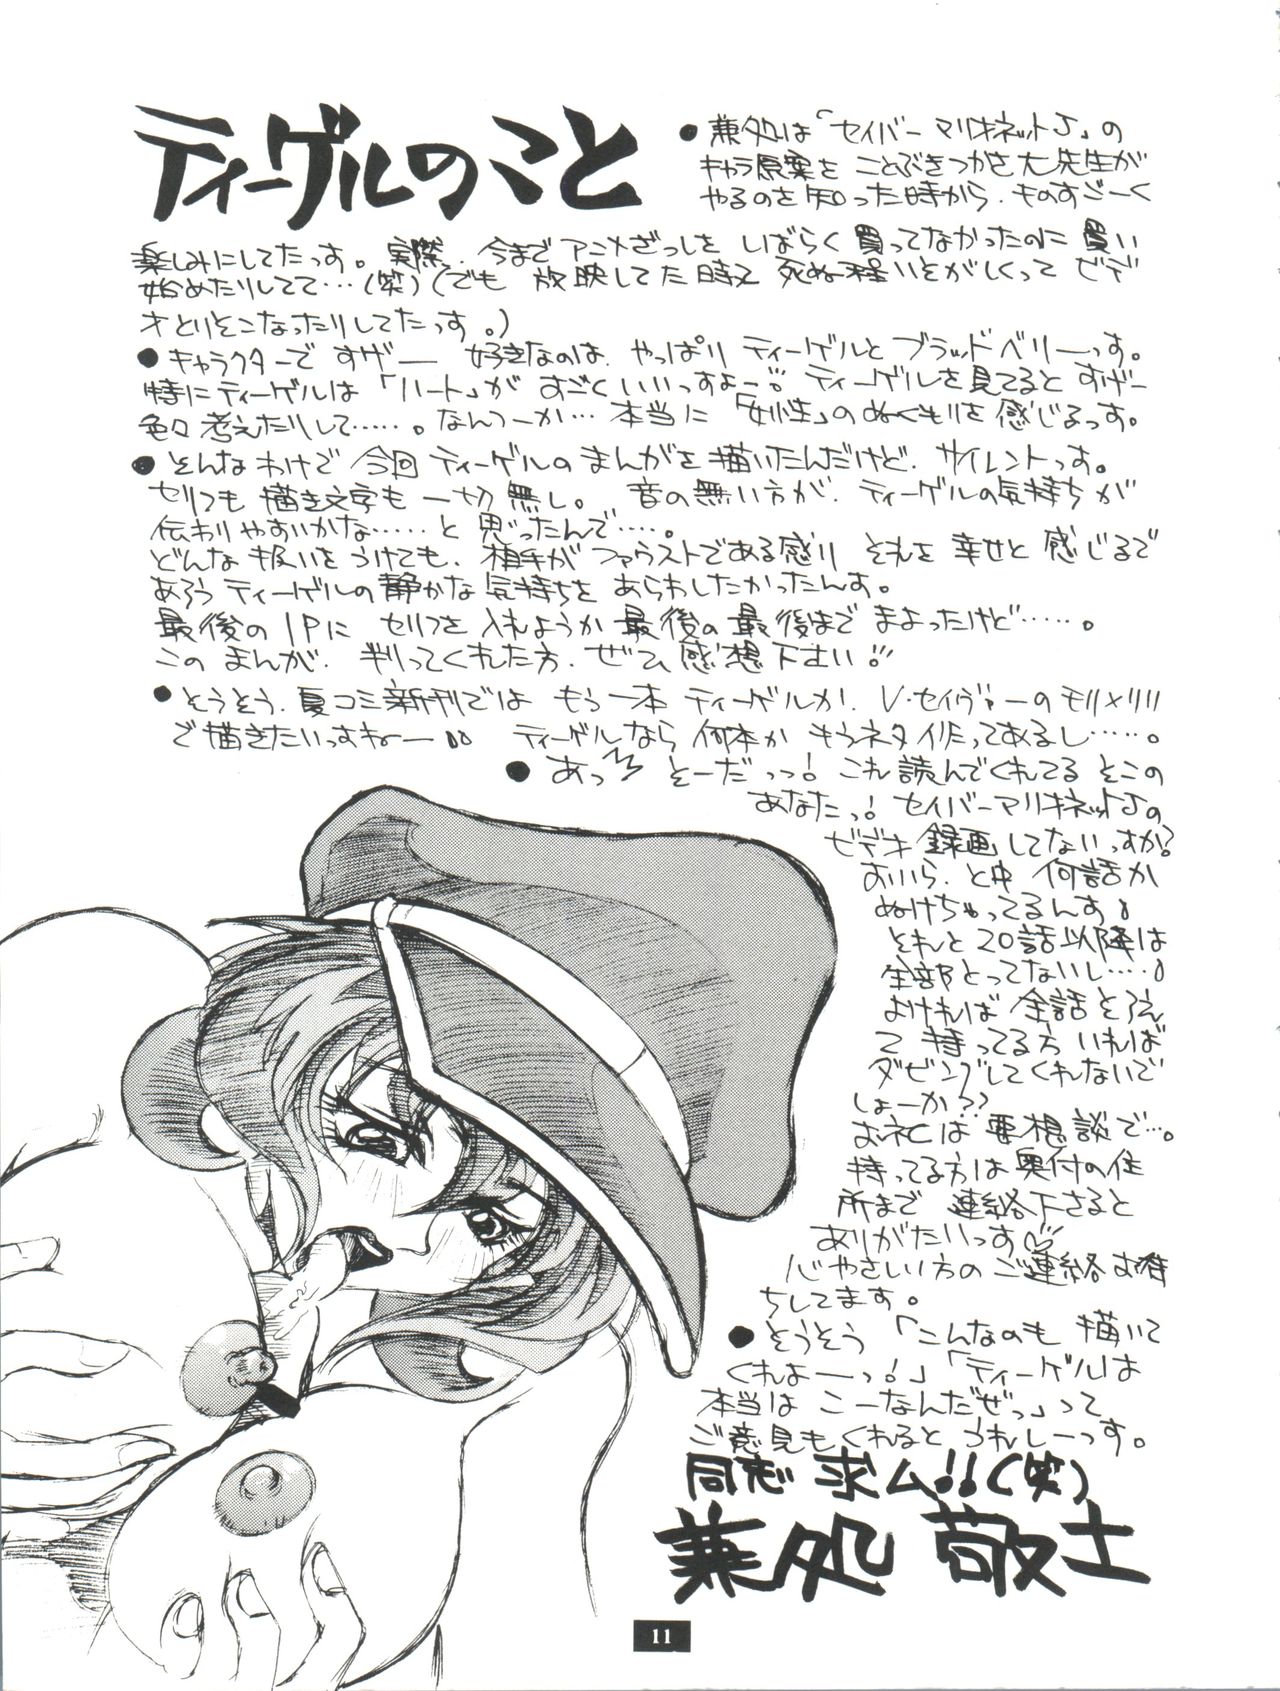 ティーゲルのこと
●兼処は「セイバーマリオネットJ」の
キャラ原案を ことぶきつかさ大先生が
やるのを知った時から、ものすごーく
楽しみにしてたっす。実際、今までアニメざっしを しばらく買ってなかったのに買い
始めたりしてて…(笑)(でも 放映してた時って 死ぬ程いそがしくって ビデ
オとりそこなったりしてたっす。)
●キャラクターで すげー 好きなのは、やっぱり ティーゲルと ブラッドベリーっす。
特にティーゲルは「ハート」が すごくいいっすよー!! ティーゲルを見てると すげー
色々考えたりして……。なんつーか… 本当に「女性」のぬくもりを感じるっす。
●そんなわけで 今回 ティーゲルの まんがを描いたんだけど、サイレントっす。
セリフも 描き文字も 一切 無し。 音の無い方が、ティーゲルの気持ちが
伝わりやすいかな……と 思ったんで……。
どんな扱いをうけても、相手が ファウストである限り それを 幸せと 感じるで
あろう ティーゲルの 静かな 気持ちを あらわしたかったんす。
最後の1Pに セリフを 入れようか 最後の 最後まで まよったけど……。
この まんが、判ってくれた方、ぜひ 感想下さい!!
●そうそう、夏コミ新刊では もう一本 ティーゲルか、V・セイヴァーのモリ×リリ
で描きたいっすねー!! ティーゲルなら 何本か もうネタ作ってあるし……。
●あっ そーだっっ! これ読んでくれてる そこの
あなたっ! セイバーマリオネットJの
ビデオ 録画してないっすか?
おいら、と中 何話か
ぬけちゃってるんす!
それと 20話以降は
全部とってないし…!
よければ 全話 そろえ
て 持ってる方 いれば
ダビングしてくれないで
しょーか??
お礼は 要相談で…。
持ってる方は 奥付の住
所まで 連絡下さると
ありがたいっす♡
心やさしい方の ご連絡 お待
ちしてます。
●そうそう「こんなのも 描いて
くれよーっ!」「ティーゲルは
本当は こーなんだぜっ」って
ご意見もくれると うれしーっす。
同志 求ム!!(笑)
兼処 敬士
11